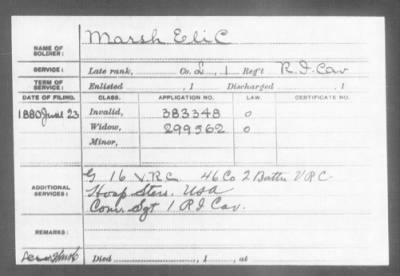 NAME OF SOLDIER: Marsh Eli C
SERVICE: Late rank, Co. L, 1 Reg't R.I. Cav
TERM OF SERVICE: Enlisted , 1 Discharged , 1
DATE OF FILING. CLASS. APPLICATION NO. LAW. CERTIFICATE NO.
1880 23 Invalid, 383348 o
Widow, 299562 o
Minor,
ADDITIONAL SERVICES: G 16 V.R.C. 46 Co 2 Battn V R C
Hosp Stew. USA
Com Sgt 1 R I Cav.
REMARKS:
Died , 1 , at